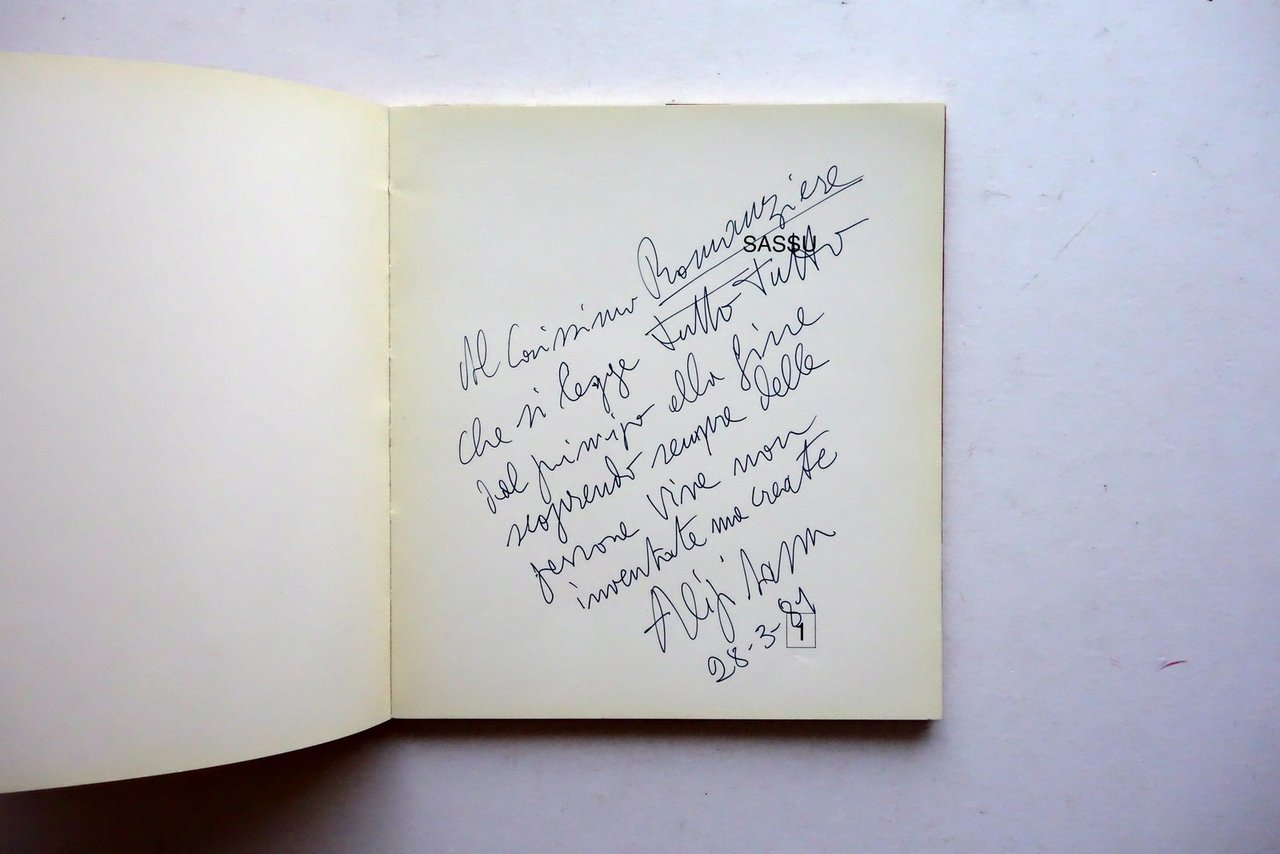 Al Carissimo Romanziere
SASSU
che si legge tutto tutto
dal principio alla fine
scoprendo sempre delle
persone vive non
inventate ma create
Aligi Sassu
28-3-81
1